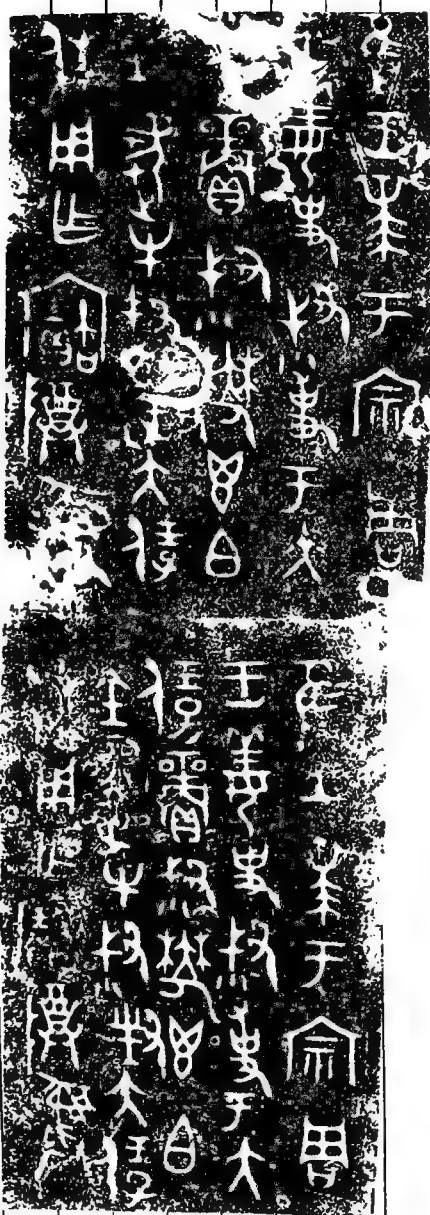 隹王𠦪于宗周
姜史叔事于大
賞叔鬱鬯白
金芻牛叔對大保
休用乍寶尊彝
隹王𠦪于宗周
王姜史叔事于大
保賞叔鬱鬯白
金芻牛叔對大保
休用乍尊彝